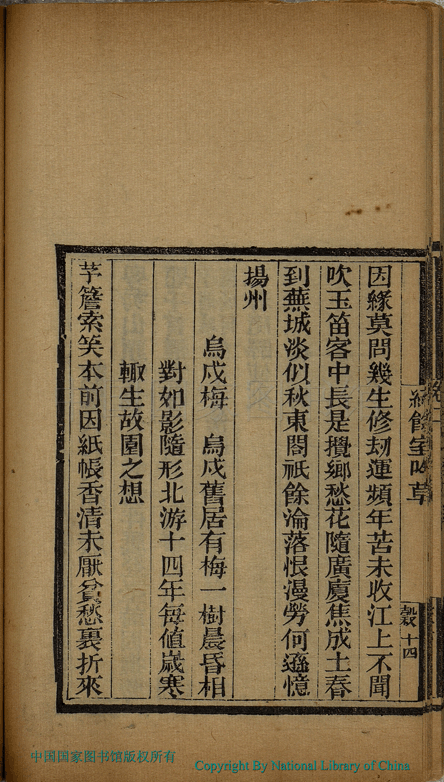 因緣莫問幾生修刼運頻年苦未收江上不聞
吹玉笛客中長是攪鄉愁花隨廣廈焦成土春
到蕪城淡似秋東閣祇餘淪落恨漫勞何遜憶
揚州
烏戍梅 烏戍舊居有梅一樹晨昏相
對如影隨形北游十四年每值歲寒
輙生故園之想
芋簷索笑本前因紙帳香清未厭貧愁裏折來
餘室吟草
十四
中国国家图书馆版权所有
Copyright By National Library of China